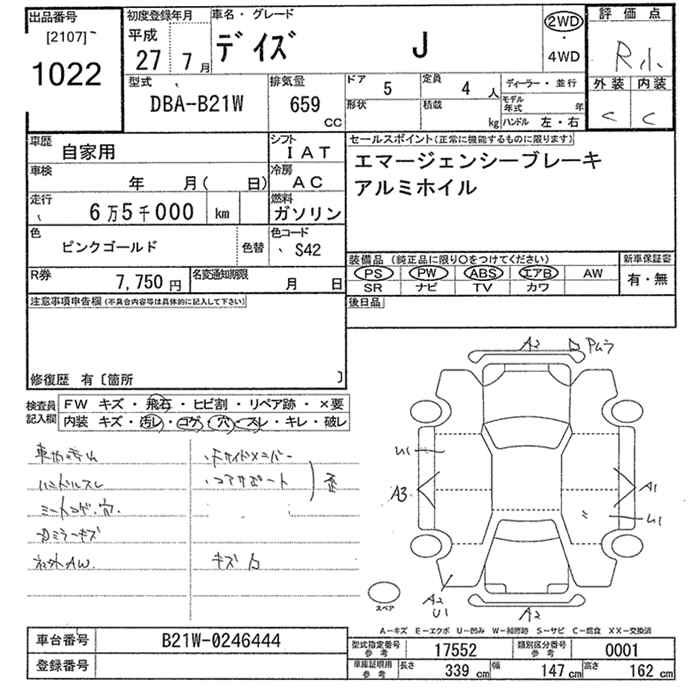 出品番号
[2107]
1022
初度登録年月
平成
27 7月
車名・グレード
デイズ J
2WD
・
4WD
評価点
R小
外装 内装
C C
型式
DBA-B21W
排気量
659
CC
ドア 5
定員 4 人
形状
積載 kg
ディーラー・並行
モデル年式 年
ハンドル 左・右
車歴
自家用
シフト
IAT
車検
年 月( 日)
冷房
AC
走行
6万5千000 km
燃料
ガソリン
色
ピンクゴールド
色替
色コード
S42
R券
7,750 円
名変通知期限
月 日
セールスポイント(正常に機能するものに限ります)
エマージェンシーブレーキ
アルミホイル
装備品 (純正品に限り〇をつけてください)
新車保証書
PS PW ABS エアB AW
SR ナビ TV カワ
有・無
後日品
注意事項申告欄(不具合内容等は具体的に記入して下さい)
修復歴 有〔箇所 〕
検査員記入欄
FW キズ・飛石・ヒビ割・リペア跡・×要
内装 キズ・汚レ・コゲ・穴・スレ・キレ・破レ
ハンドルスレ
シートコゲ・穴
社外AW
サイドメンバー
コアサポート
歪
キズ
A2
U1
A3
A1
U1
A2
U1
A2
スペア
A-キズ E-エクボ U-凹み W-補修跡 S-サビ C-腐食 XX-交換済
車台番号 B21W-0246444
登録番号
型式指定番号参考 17552
類別区分番号参考 0001
車庫証明用参考 長さ 339 cm 幅 147 cm 高さ 162 cm